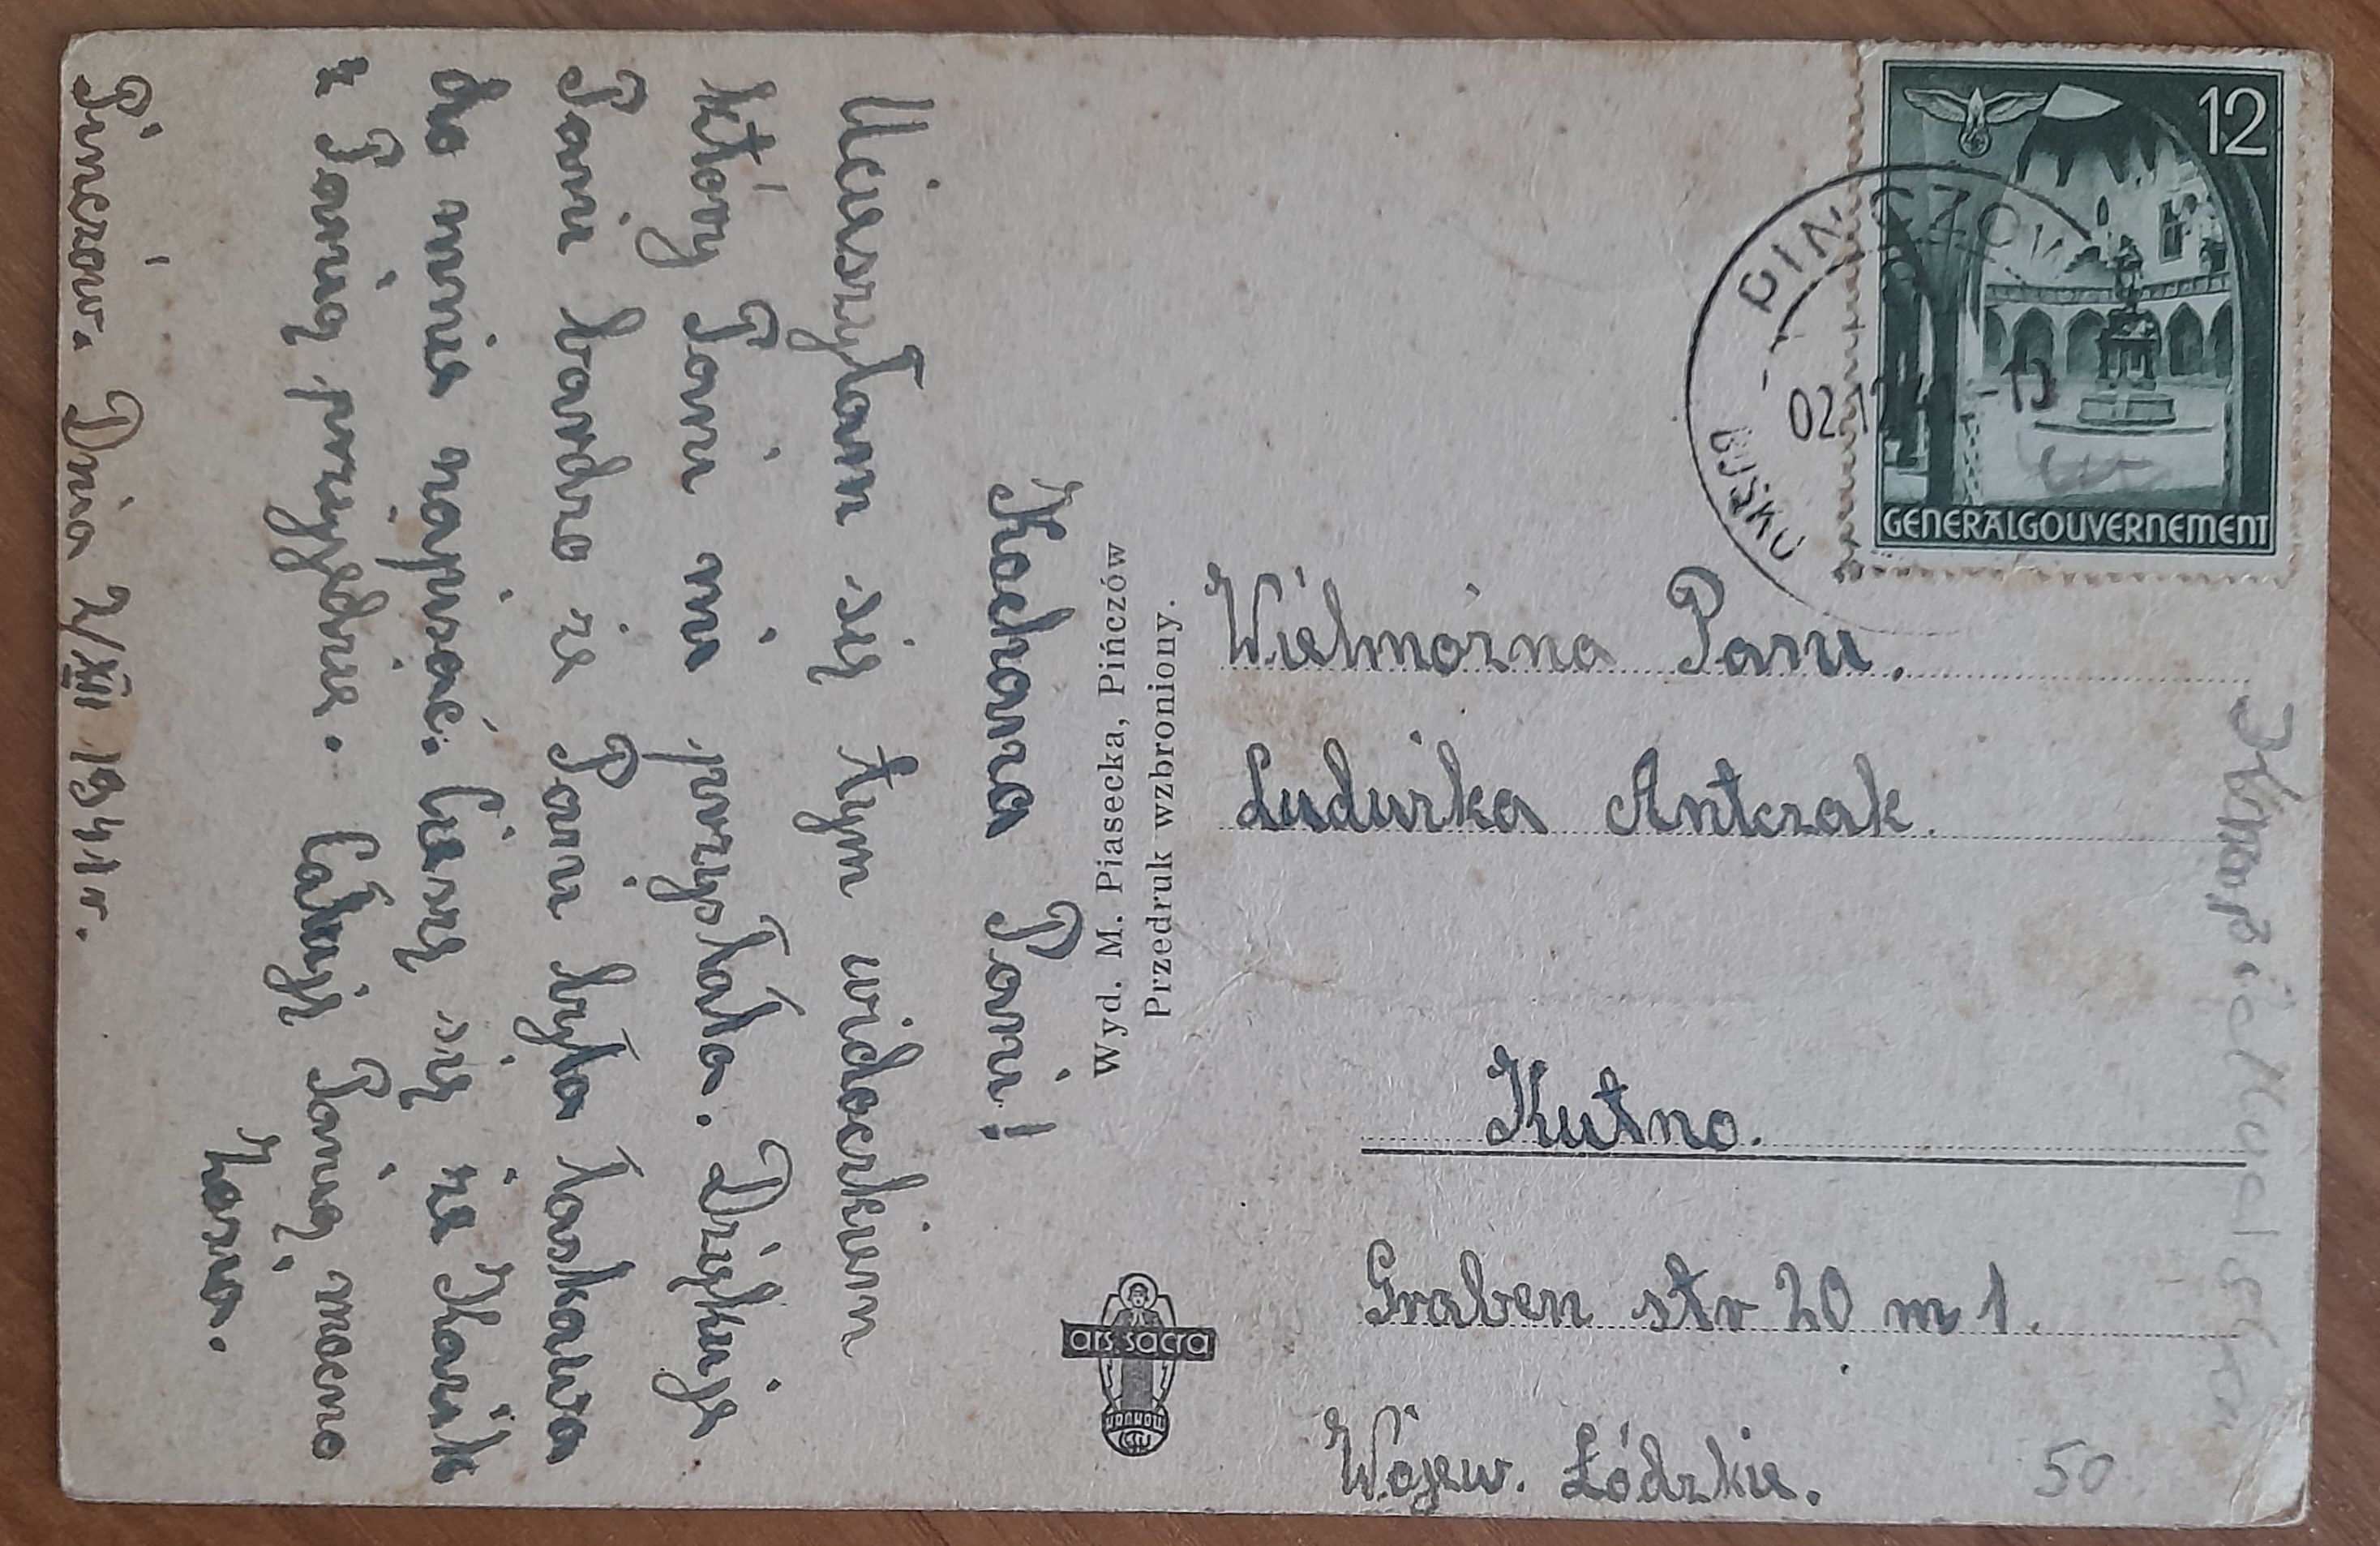 Kochana Pani!
Ucieszyłam się tym widoczkiem
który Pani mi przysłała. Dziękuje
Pani bardzo że Pani była łaskawa
do mnie napisać. Cieszę się że Kazik
z Panią przyjedzie. Całuję Panią mocno
Pińczów. Dnia 2/XII 1941 r.
Wyd. M. Piasecka, Pińczów
Przedruk wzbroniony.
ars sacra
KRAKÓW
12
GENERALGOUVERNEMENT
PINCZO
BUSKO
02.12
Wielmożna Pani.
Ludwika Antczak.
Kutno.
Graben str 20 m 1.
Wojew. Łódzkie.
50